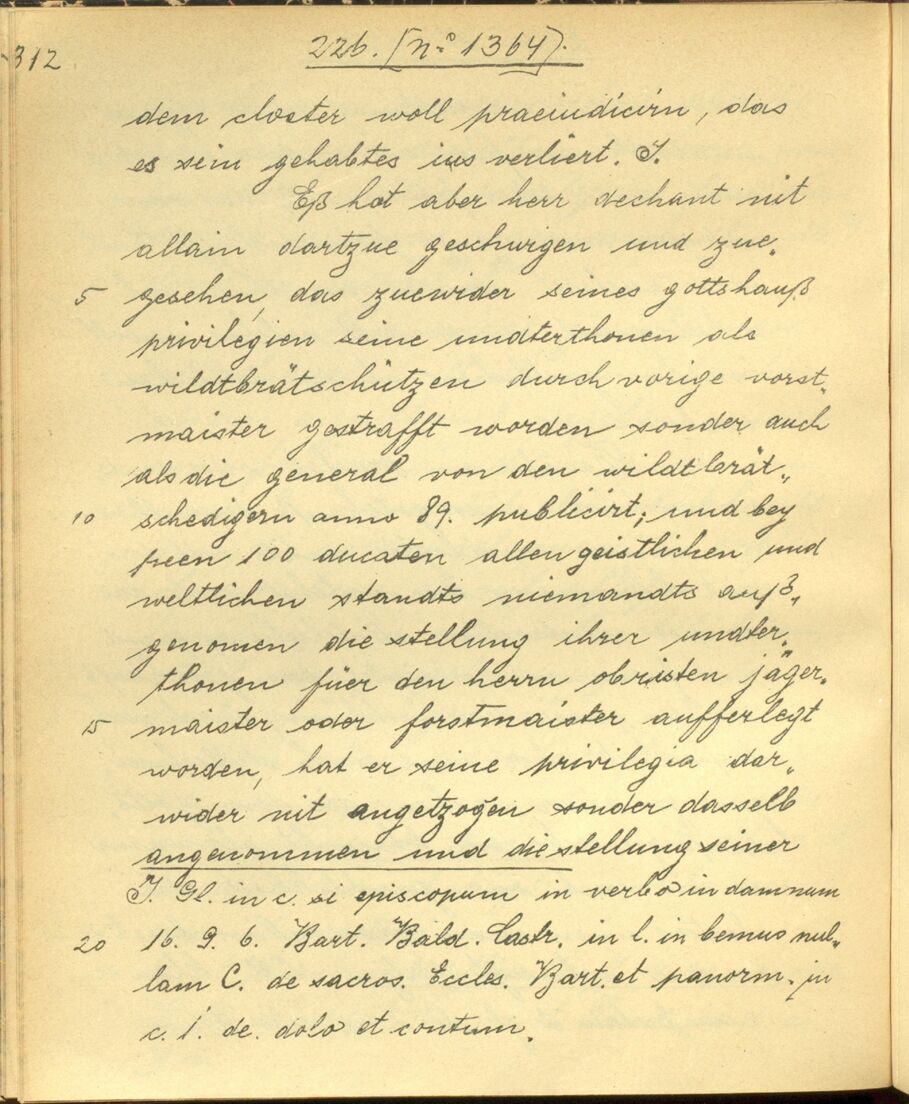 312
226. [n:o 1364].
dem closter woll praeiudicirn, das
es sein gehabtes ius verliert. I.
Eß hat aber herr dechant nit
allain dartzue geschwigen und zue„
5 gesehen, das zuewider seines gottshauß
privilegien seine undterthonen als
wildtbrätschützen durch vorige vorst„
maister gestrafft worden sonder auch
als die general von den wildtbrät„
10 schedigern anno 89. publicirt; und bey
peen 100 ducaten allen geistlichen und
weltlichen standts niemandts auß„
genomen die stellung ihrer undter„
thonen füer den herrn obristen jäger„
15 maister oder forstmaister aufferlegt
worden, hat er seine privilegia dar„
wider nit angetzogen sonder dasselb
angenommen und die stellung seiner
I. Gl. in c. si episcopum in verbo in damnum
20 16. q. 6. Bart. Bald. Castr. in l. in bemus nul„
lam C. de sacros. Eccles. Bart. et panorm. in
c. 1. de. dolo et contum.